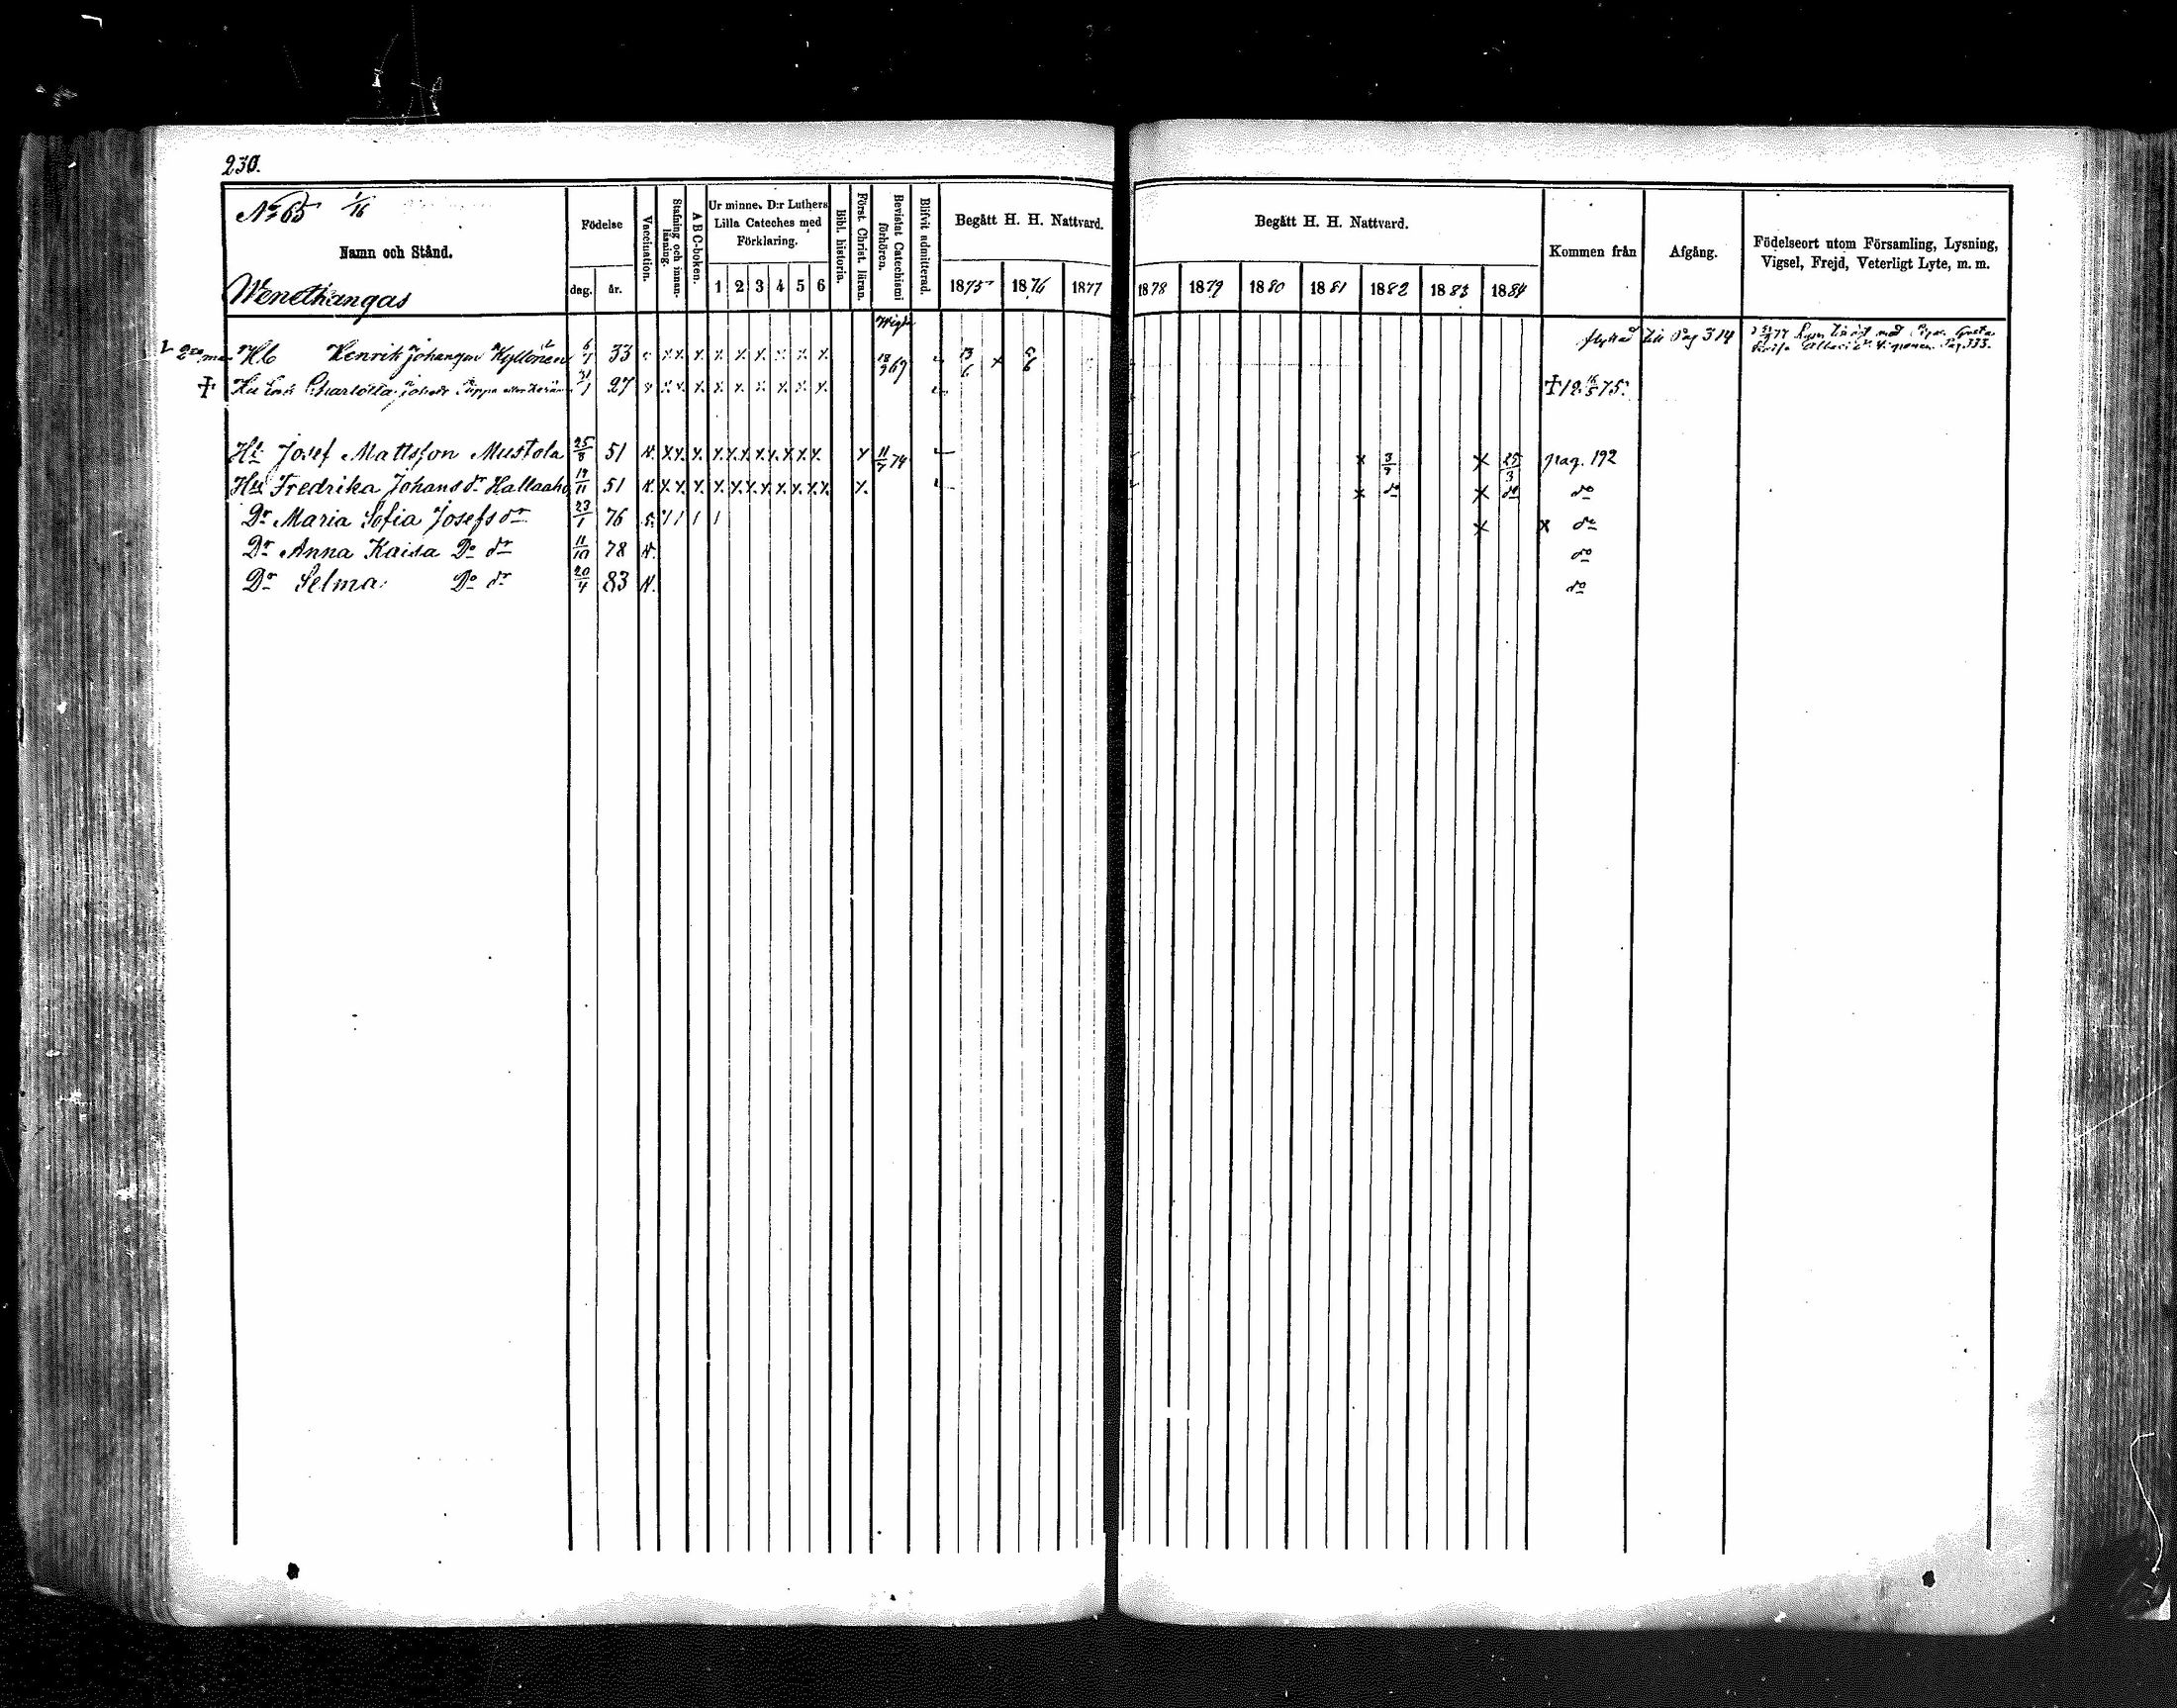 230.
No 65 1/16
Namn och Stånd.
Wenethangas
Födelse
dag. år.
Vaccination.
Stafning och innan-läsning.
A B C-boken.
Ur minne. D:r Luthers
Lilla Cateches med
Förklaring.
1 2 3 4 5 6
Bibl. historia.
Först. Christ. läran.
Bevistat Catechismi förhören.
Blifvit admitterad.
Begått H. H. Nattvard.
1875 1876 1877
Begått H. H. Nattvard.
1878 1879 1880 1881 1882 1883 1884
Kommen från
Afgång.
Födelseort utom Församling, Lysning,
Vigsel, Frejd, Veterligt Lyte, m. m.
Henrik Johansson Kyllönen 6/1 33 x x x x x x x x x 18/3 69 13/6 x flyttad till Pag 314
† Hu Charlotta 31/1 27 x x x x x x x x x † 75
Hl Josef Mattsson Mustola 25/8 51 v. x x x x x x x x x x x x 11/7 74 x 3/9 x 25/3 pag. 192
Hu Fredrika Johans dr Hallaaho 19/11 51 v. x x x x x x x x x x x x x do x do do
Dr Maria Sofia Josefs dr 23/1 76 x x do
Dr Anna Kaisa Do dr 11/10 78 v. do
Dr Selma Do dr 20/4 83 v. do